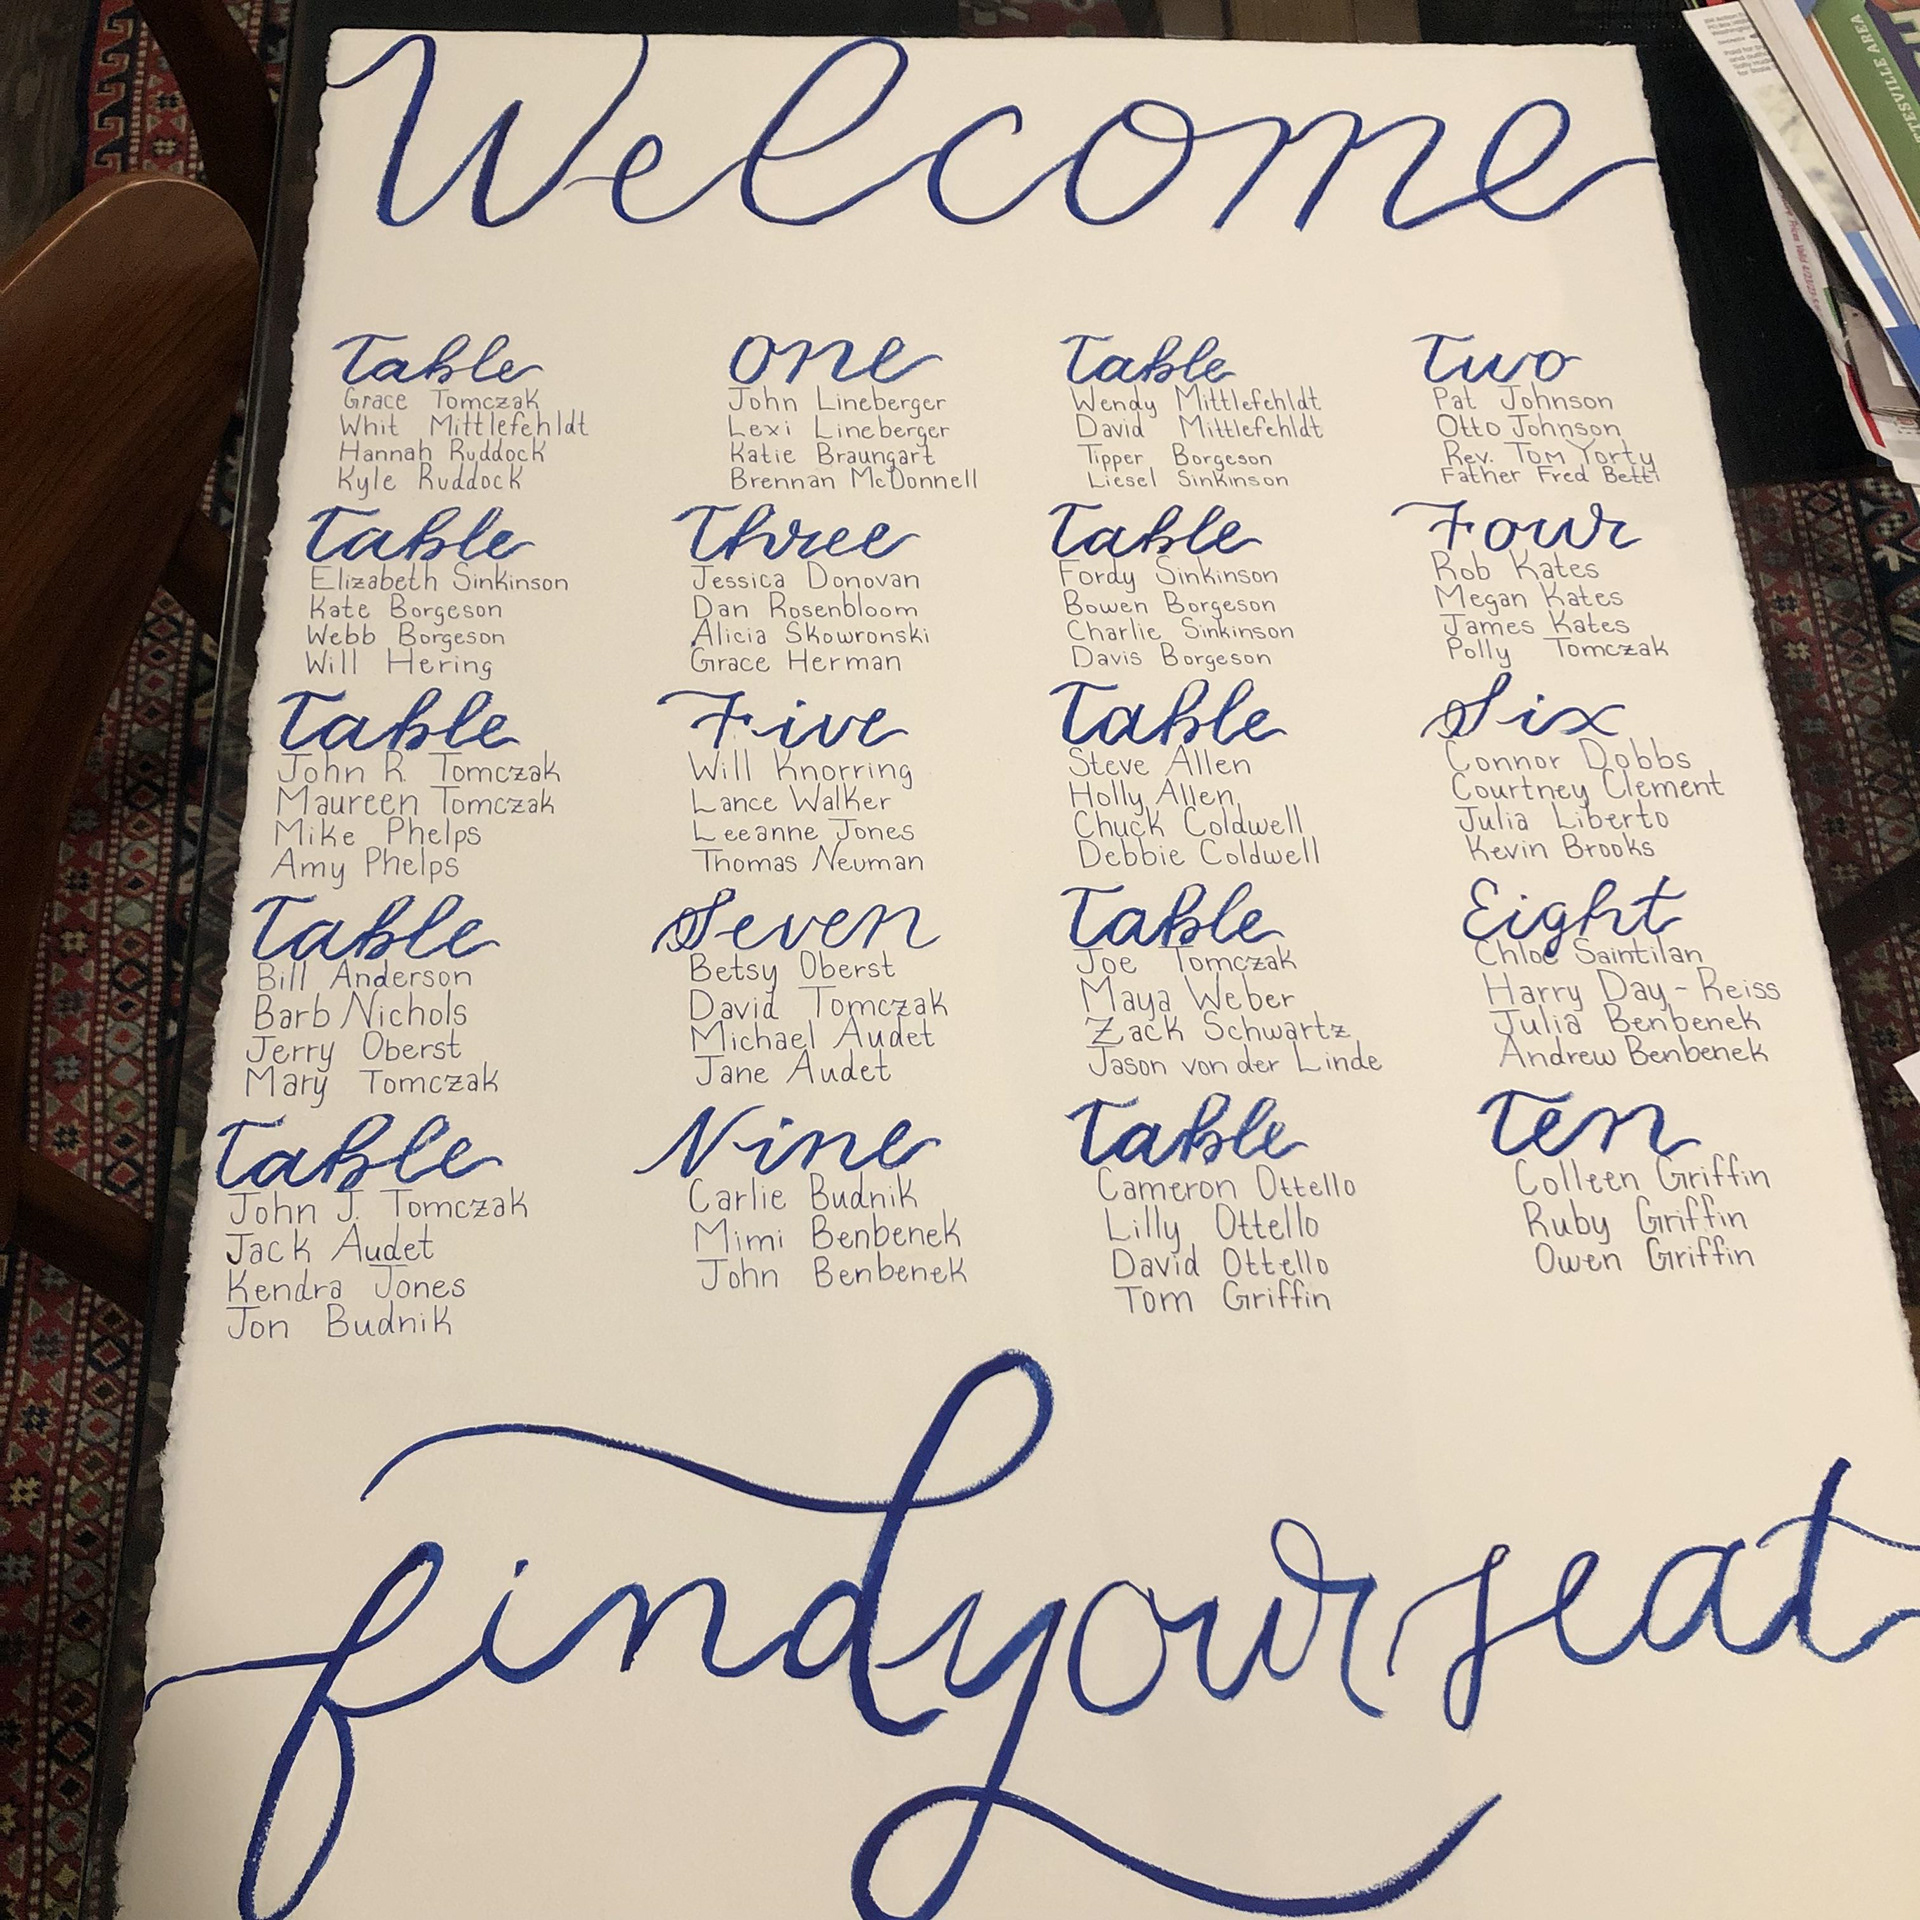 Welcome
Table one
Grace Tomczak
Whit Mittlefehldt
Hannah Ruddock
Kyle Ruddock
John Lineberger
Lexi Lineberger
Katie Braungart
Brennan McDonnell
Table Two
Wendy Mittlefehldt
David Mittlefehldt
Tipper Borgeson
Liesel Sinkinson
Pat Johnson
Otto Johnson
Rev. Tom Yorty
Father Fred Betti
Table Three
Elizabeth Sinkinson
Kate Borgeson
Webb Borgeson
Will Hering
Jessica Donovan
Dan Rosenbloom
Alicia Skowronski
Grace Herman
Table Four
Fordy Sinkinson
Bowen Borgeson
Charlie Sinkinson
Davis Borgeson
Rob Kates
Megan Kates
James Kates
Polly Tomczak
Table Five
John R. Tomczak
Maureen Tomczak
Mike Phelps
Amy Phelps
Will Knorring
Lance Walker
Leeanne Jones
Thomas Neuman
Table Six
Steve Allen
Holly Allen
Chuck Coldwell
Debbie Coldwell
Connor Dobbs
Courtney Clement
Julia Liberto
Kevin Brooks
Table Seven
Bill Anderson
Barb Nichols
Jerry Oberst
Mary Tomczak
Betsy Oberst
David Tomczak
Michael Audet
Jane Audet
Table Eight
Joe Tomczak
Maya Weber
Zack Schwartz
Jason von der Linde
Chloe Saintilan
Harry Day-Reiss
Julia Benbenek
Andrew Benbenek
Table Nine
John J. Tomczak
Jack Audet
Kendra Jones
Jon Budnik
Carlie Budnik
Mimi Benbenek
John Benbenek
Table Ten
Cameron Ottello
Lilly Ottello
David Ottello
Tom Griffin
Colleen Griffin
Ruby Griffin
Owen Griffin
find your seat